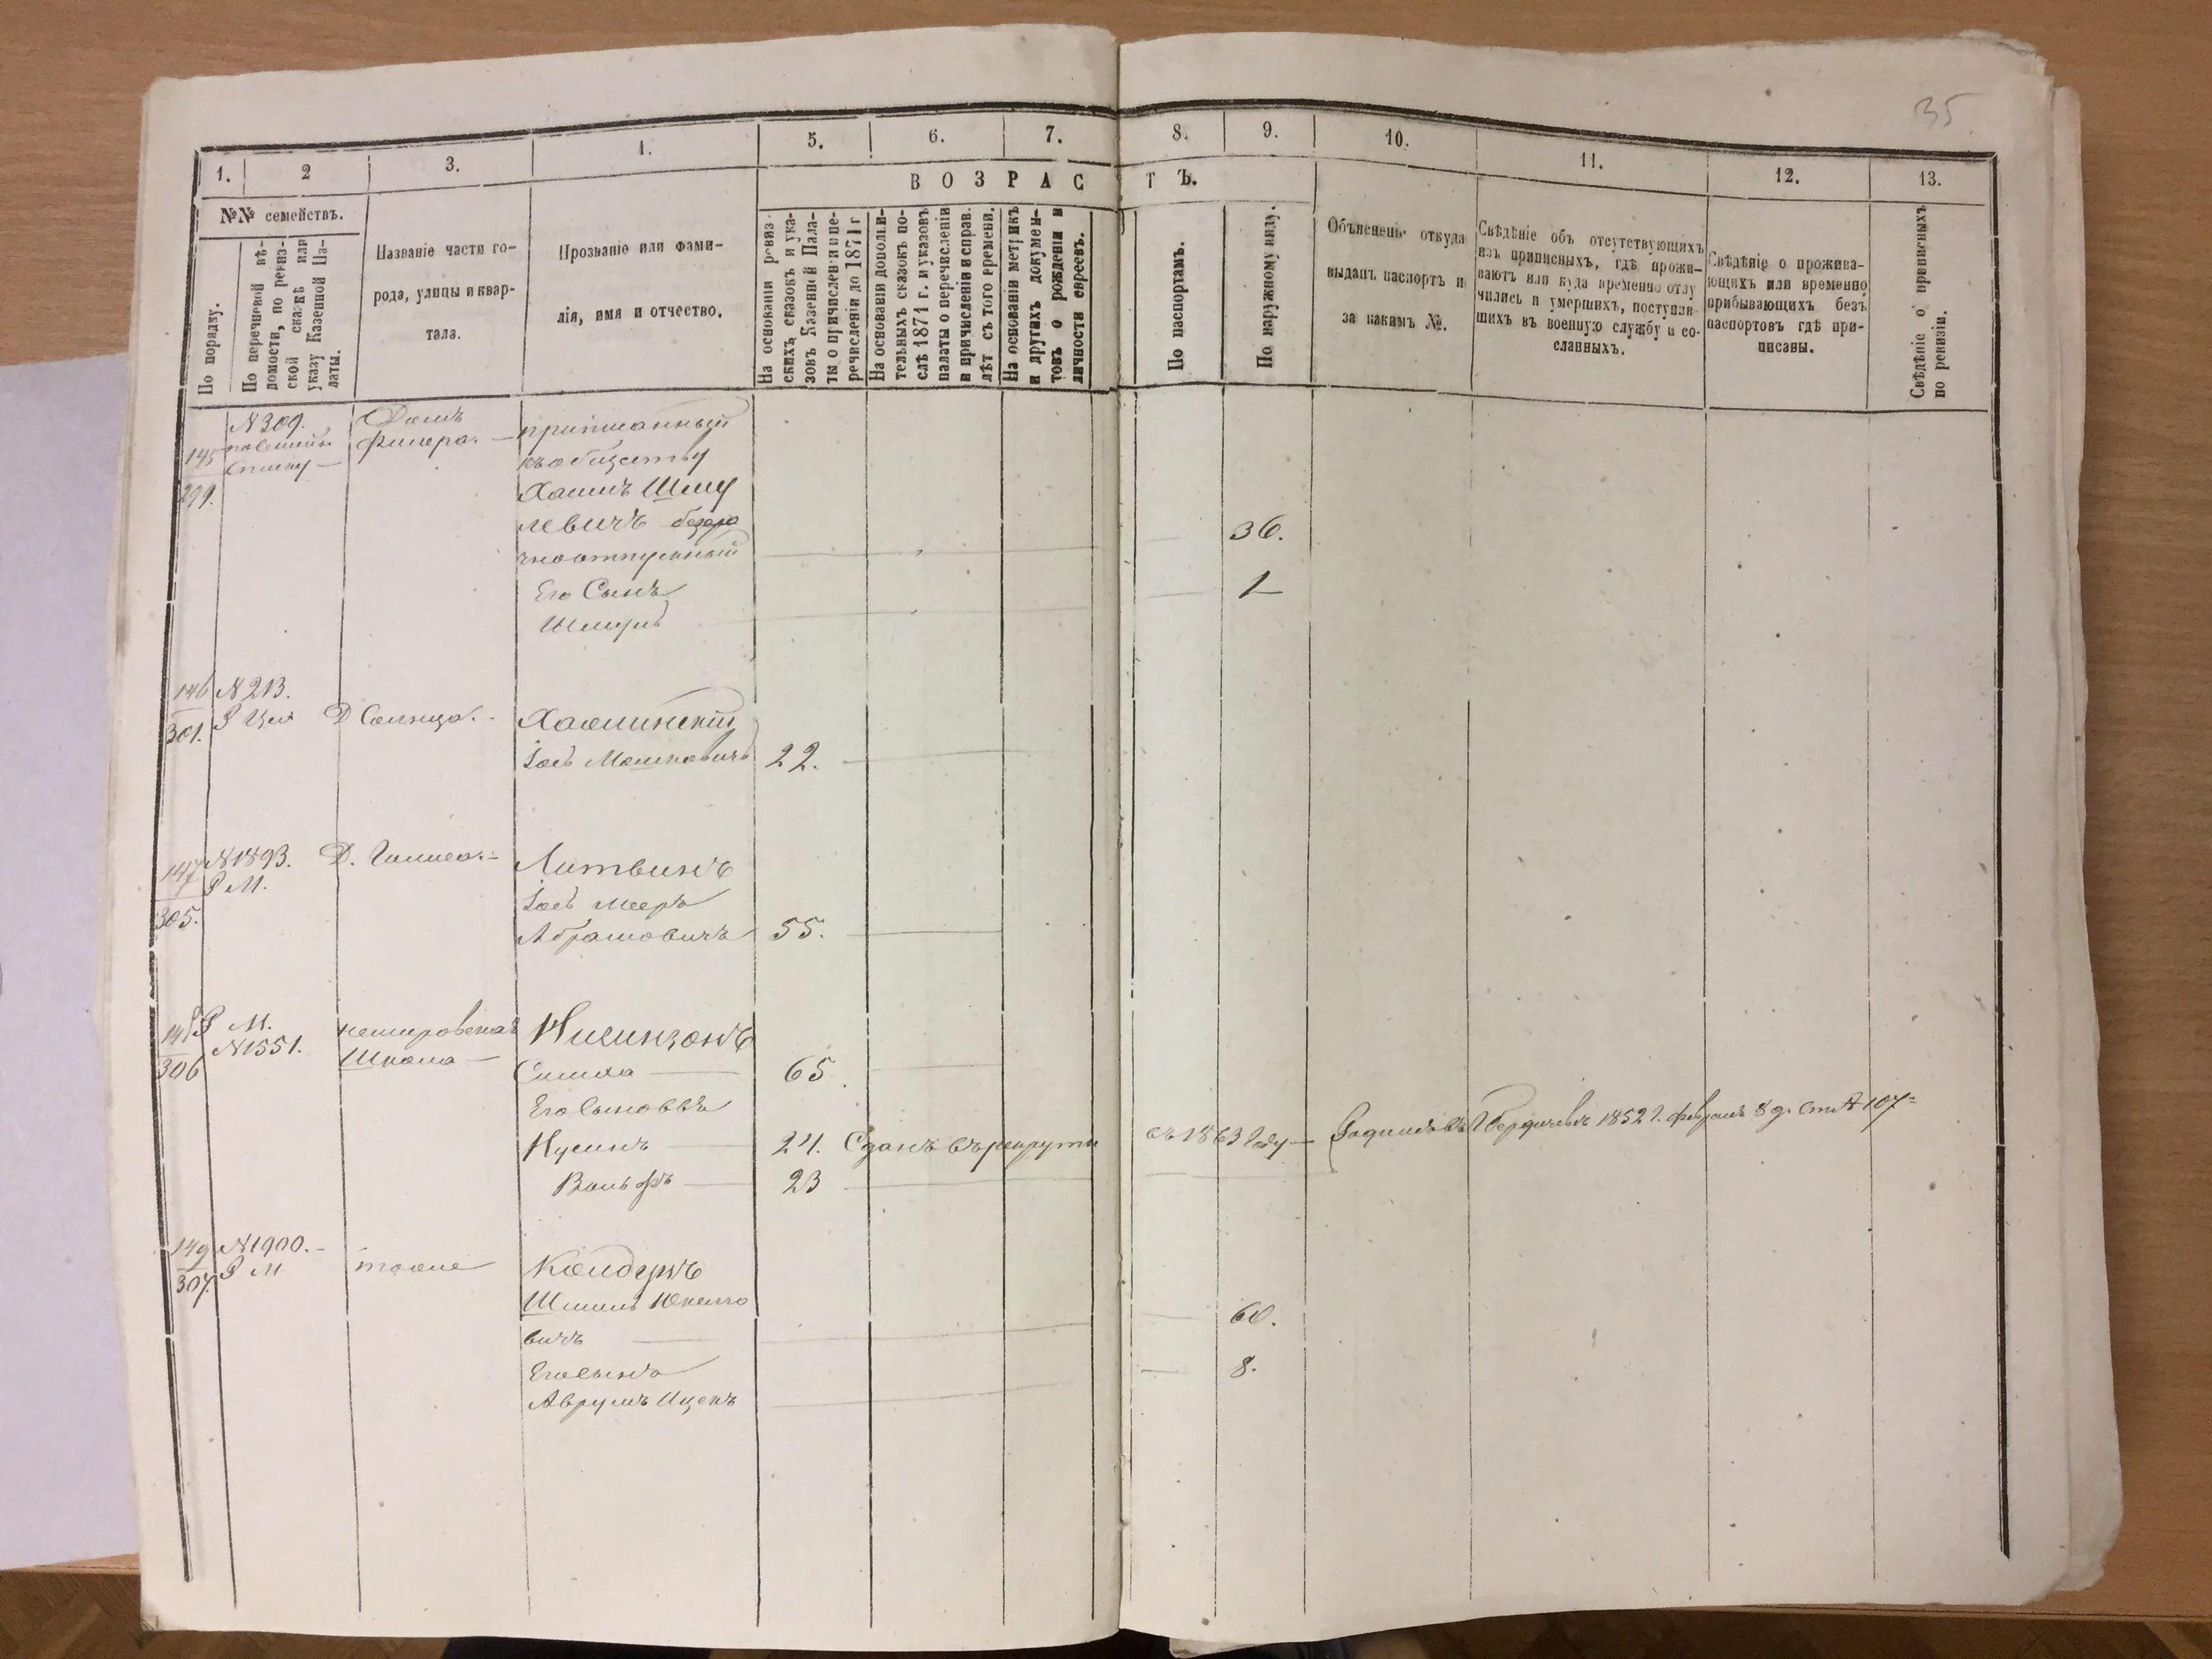 35
1.
2
3.
4.
5.
6.
7.
8.
9.
10.
11.
12.
13.
ВОЗРАСТЪ.
№№ семействъ.
По порядку.
По перечневой вѣ-
домости, по ревиз-
ской сказкѣ или
указу Казенной Па-
латы.
Названіе части го-
рода, улицы и квар-
тала.
Прозваніе или фами-
лія, имя и отчество.
На основаніи ревиз-
скихъ сказокъ и ука-
зовъ Казенной Пала-
ты о причисленіи и пе-
речисленіи до 1871 г
На основаніи дополни-
тельныхъ сказокъ по-
слѣ 1871 г. и указовъ
палаты о перечисленіи
и причисленіи и исправ.
лѣт съ того времени.
На основаніи метрикъ
и другихъ докумен-
товъ о рожденіи и
личности евреевъ.
По паспортамъ.
По наружному виду.
Объясненіе откуда
выданъ паспортъ и
за какимъ №.
Свѣдѣніе объ отсутствующихъ
изъ приписныхъ, гдѣ прожи-
ваютъ или куда временно отлу
чились и умершихъ, поступив-
шихъ въ военную службу и со-
сланныхъ.
Свѣдѣніе о прожива-
ющихъ или временно
прибывающихъ безъ
паспортовъ гдѣ при-
писаны.
Свѣдѣніе о приписныхъ
по ревизіи.
145
299.
N 309.
списку
Домъ
Фишера.
приписанный
къ обществу
Хаимъ Шму
левичъ
36.
Его Сынъ
1
Шмуль
146
301.
N 213.
Р Цех
Д
Хаминскій
Іось Мошковичъ 22.
147
305.
N 1893.
Р М.
Д.
Литвинъ
Іось Мееръ
Абрамовичъ 55.
148
306
Р М.
N 1551.
немировская
Школа
Нисинзонъ
Симха 65.
Его Сыновья
Нусинъ 24. Сданъ въ рекруты въ 1863 году
Родился въ Бердичевѣ 1852 г. февраля 8 д. 107
Вольфъ 23
149
307.
N 1900.
Р М
тоже
Шмиль
вичъ
60.
Его сынъ
8.
Аврумъ Ицекъ